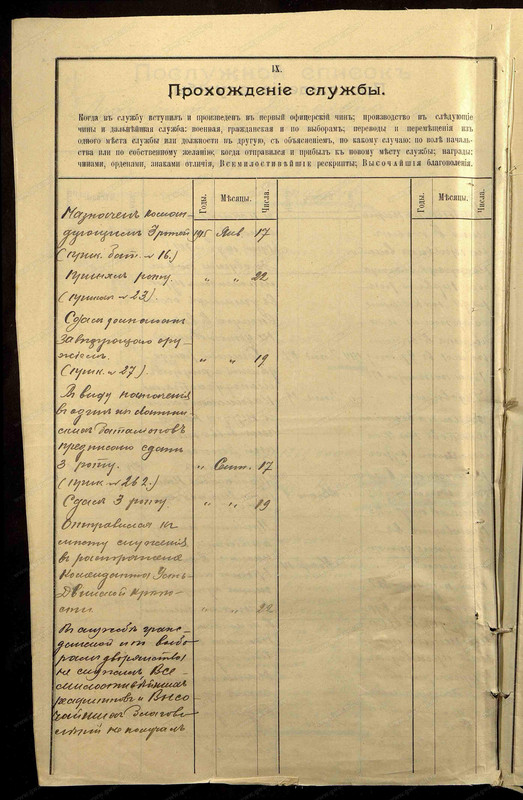 IX.
Прохожденіе службы.
Когда въ службу вступилъ и произведенъ въ первый офицерскій чинъ; производство въ слѣдующіе
чины и дальнѣйшая служба: военная, гражданская и по выборамъ; переводы и перемѣщенія изъ
одного мѣста службы или должности въ другую, съ объясненіемъ, по какому случаю: по волѣ началь-
ства или по собственному желанію; когда отправился и прибылъ къ новому мѣсту службы; награды:
чинами, орденами, знаками отличія, Всемилостивѣйшіе рескрипты; Высочайшія благоволенія.
Годы. Мѣсяцы. Числа. Годы. Мѣсяцы. Числа.
Назначенъ коман-
дующимъ 3 ротой 1915 Янв. 17
(прик. бат. № 16.)
Принялъ роту. " " 22
(приказ № 23).
Сдалъ должность
завѣдующаго ору-
жіемъ. " " 19
(прик. № 27).
Въ виду назначенія
въ одинъ изъ Латыш-
скихъ баталіоновъ
предписано сдать
3 роту. " Сент. 17
(прик. № 262.)
Сдалъ 3 роту. " " 19
Отправился къ
мѣсту служенія
въ распоряженіе
Коменданта Усть-
Двинской крѣпо-
сти. " " 22
Въ службѣ граж-
данской и по выбо-
рамъ дворянства
не служилъ Все
милостивѣйшихъ
рескриптовъ и Высо
чайшихъ Благово-
леній не получалъ